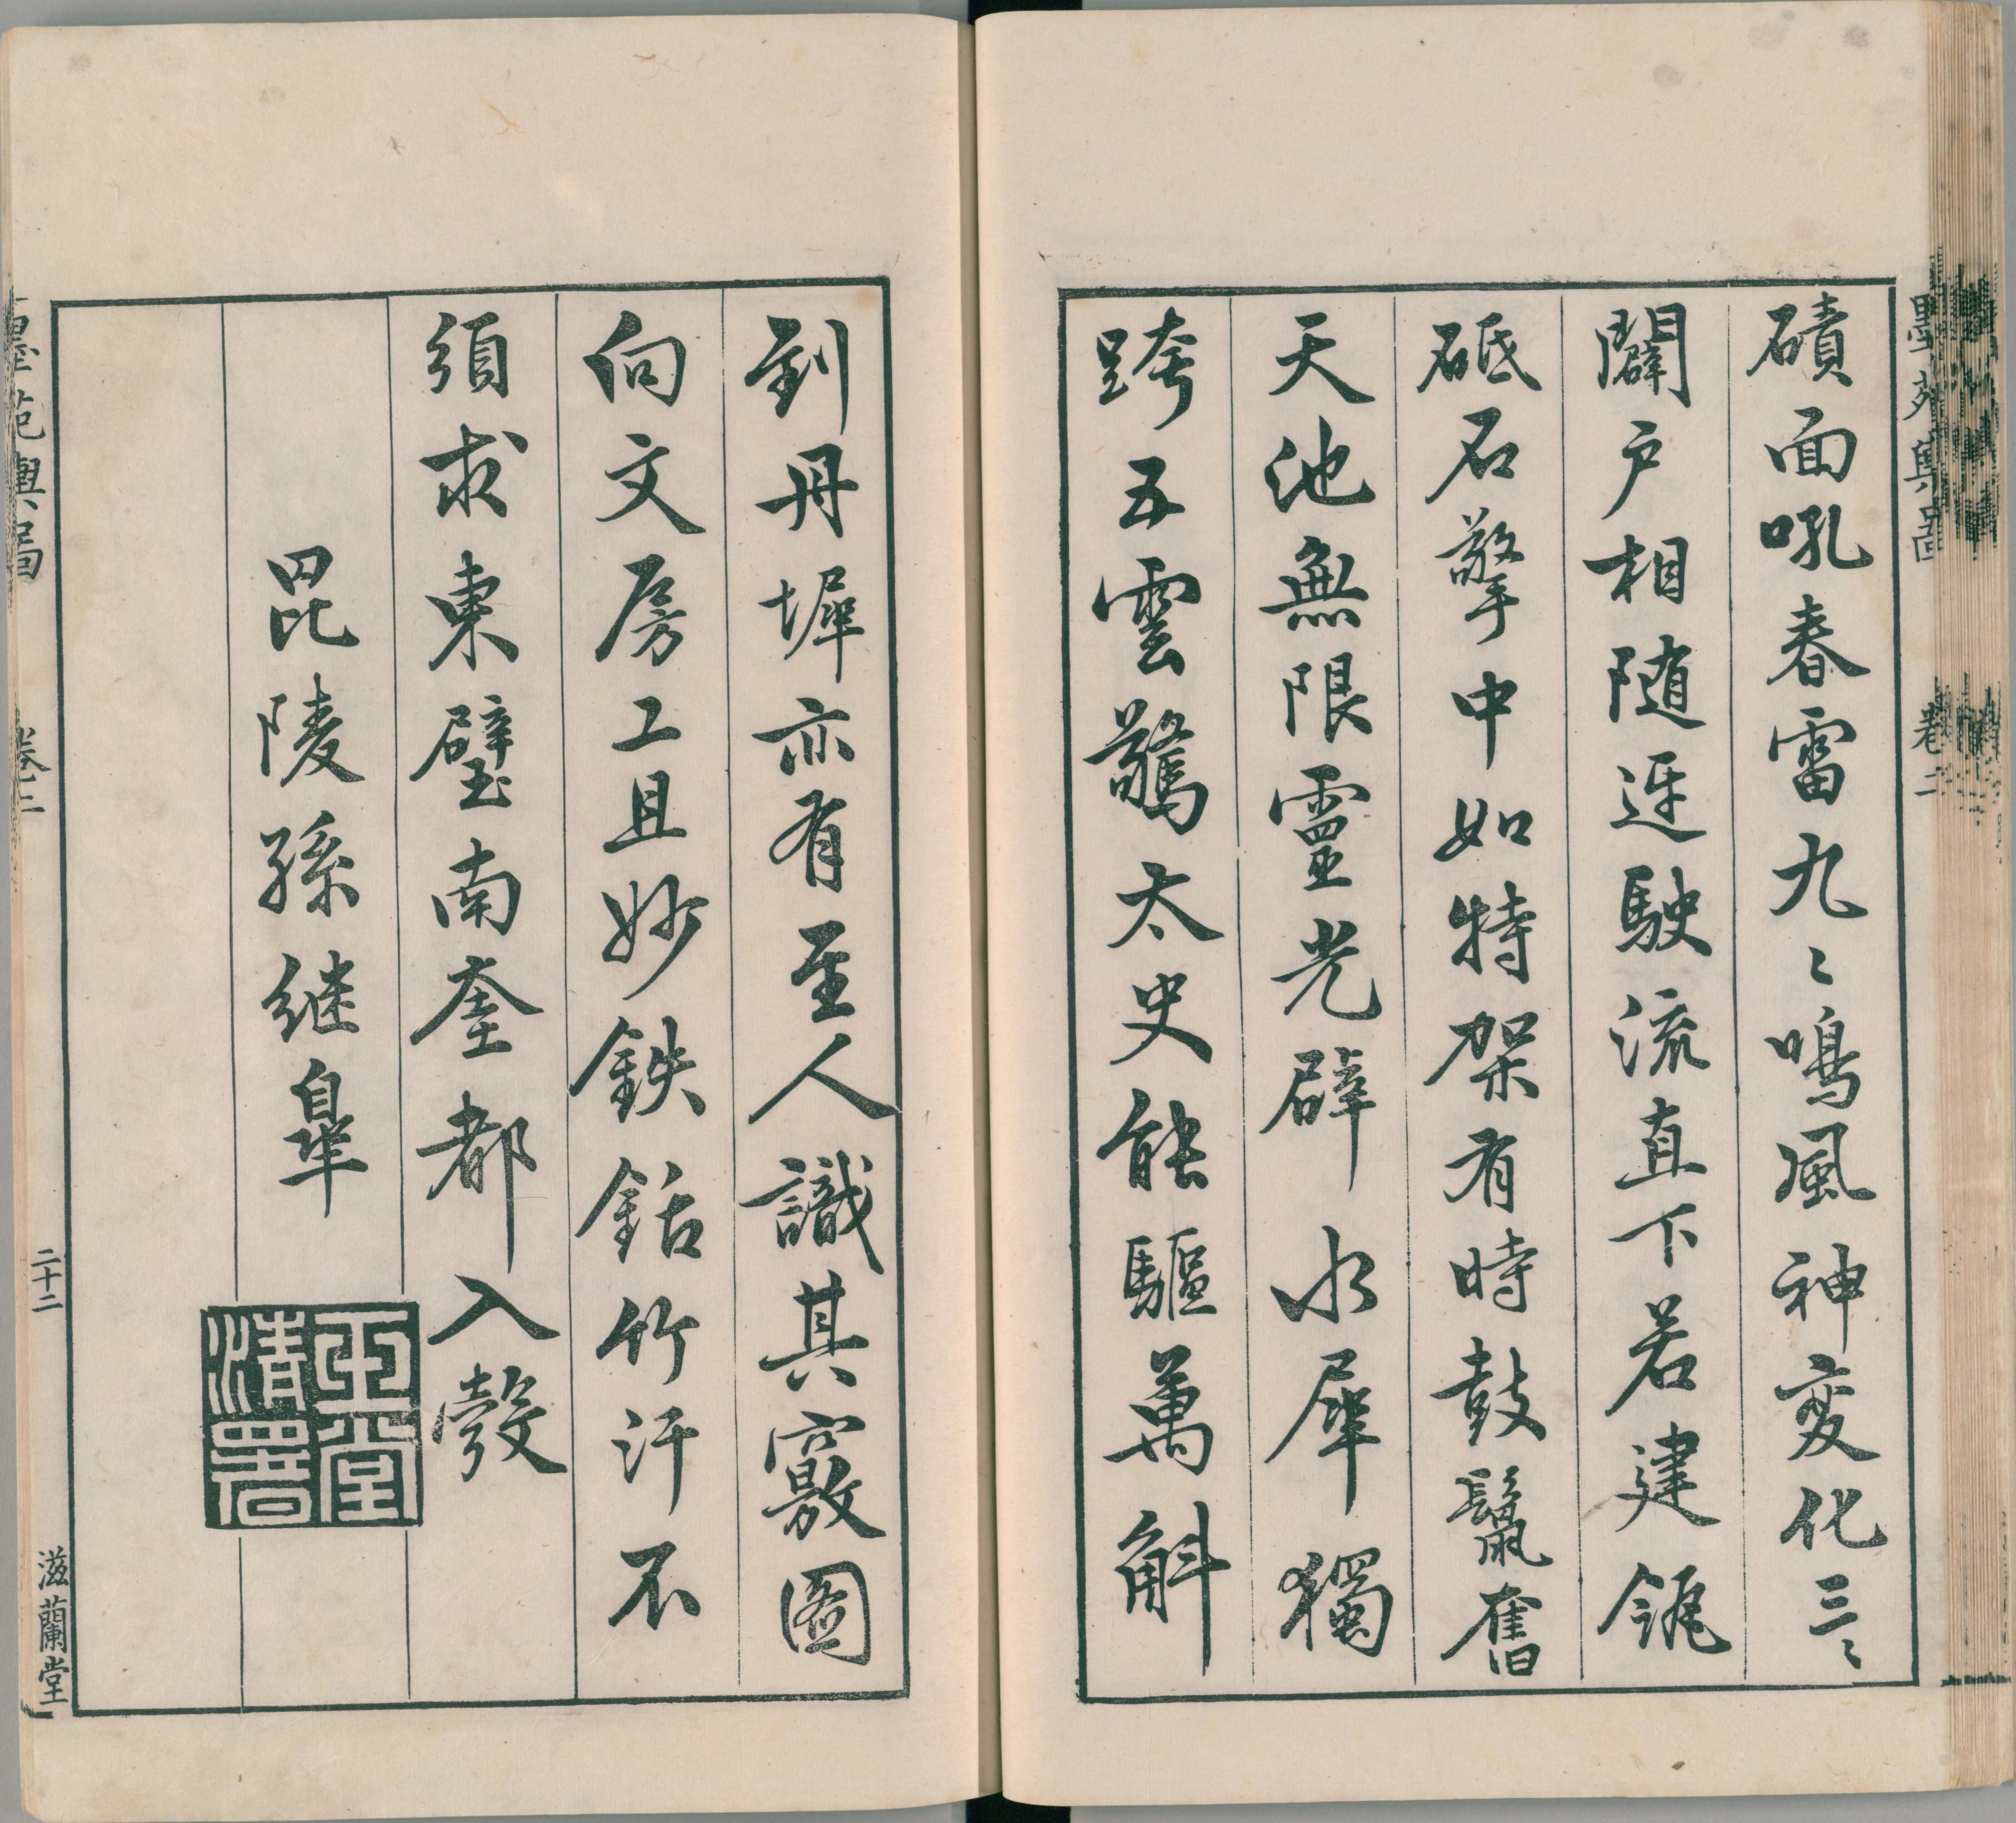 墨苑輿圖 卷二
磧面吼春雷九〻鳴風神変化三〻
闢戶相随遅駛流直下若建瓴
砥石擎中如特架有時鼓鬣奮
天池無限靈光辟水犀獨
跨五雲驚太史能驅萬斛
到丹墀亦有至人識其竅圖
向文房工且妙鉄銛竹汗不
須求東壁南奎都入彀
毘陵孫継皐
玉堂清署
墨苑輿圖 卷二 二十二 滋蘭堂